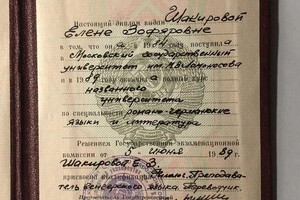 Настоящий диплом выдан Шакировой
Елене Зофяровне
в том, что она в 1984 году поступила
в Московский государственный
университет им. М.В. Ломоносова
и в 1989 году окончила полный курс
названного
университета
по специальности романо-германские
языки и литература
Решением Государственной экзаменационной
комиссии от 5 июня 1989 г.
Шакировой Е.З.
присвоена квалификация Филолог. Преподава-
тель венгерского языка. Переводчик.